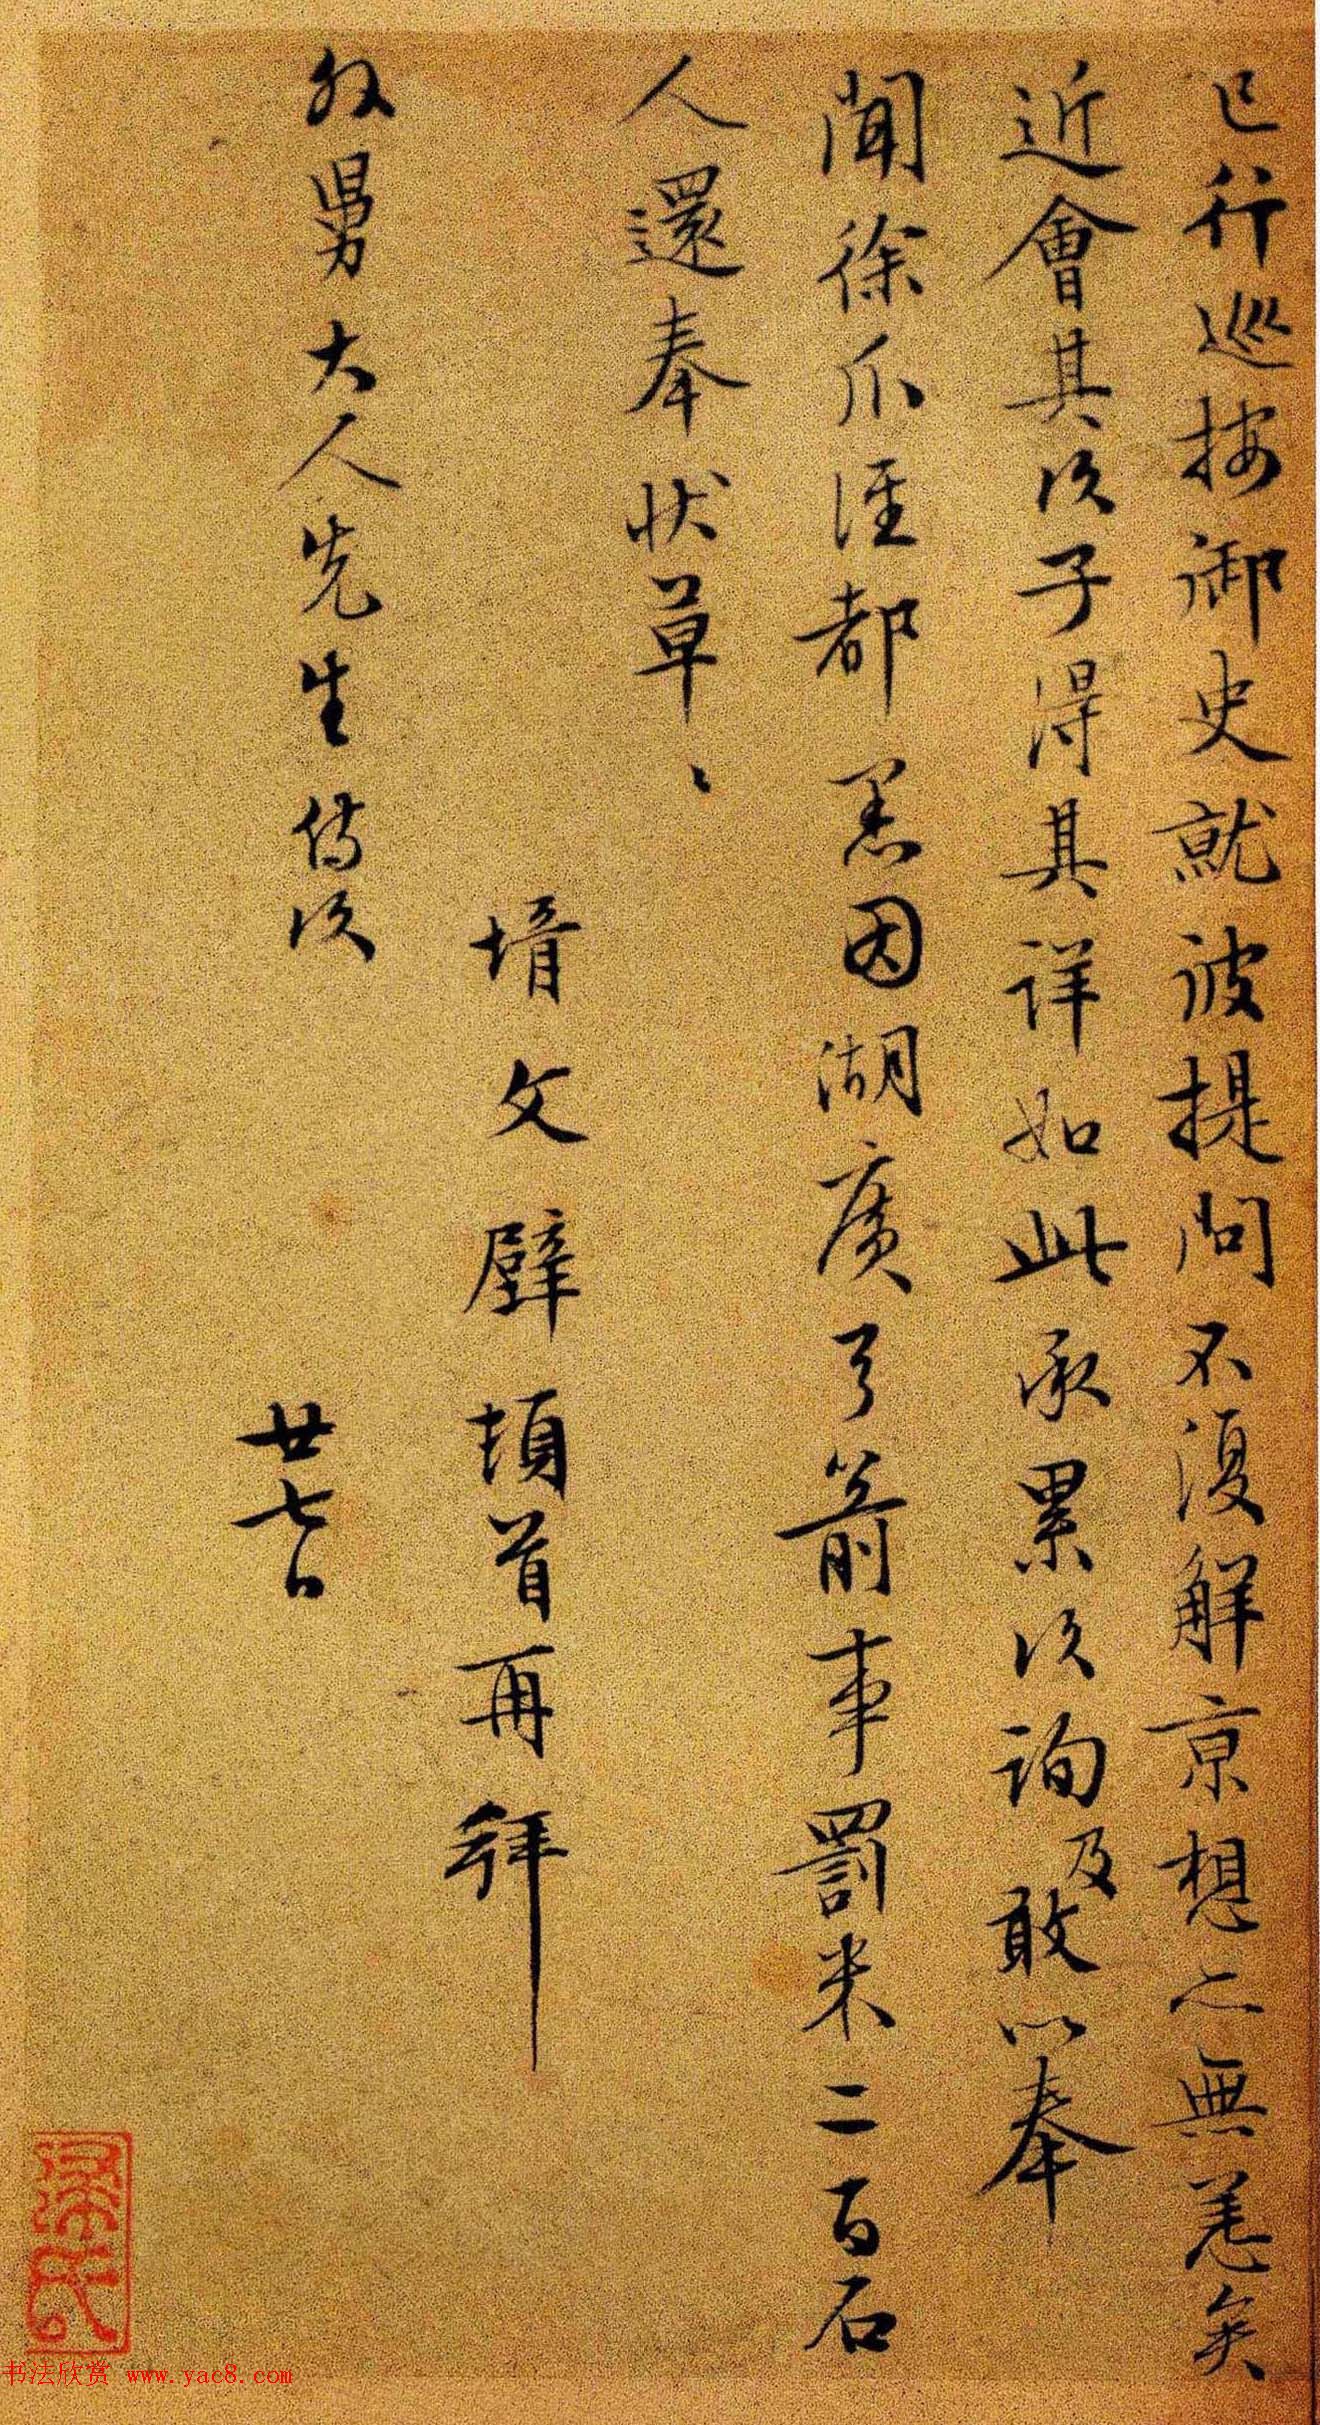 已行巡按御史就彼提問不復解京想亦無恙矣
近會其次子得其詳如此承累次詢及敢以奉
聞徐爪涇都 因湖廣弓箭事罰米二百石
人還奉狀草〻
壻文壁頓首再拜
舅大人先生侍次
廿七日
梁氏
书法欣赏 www.yac8.com